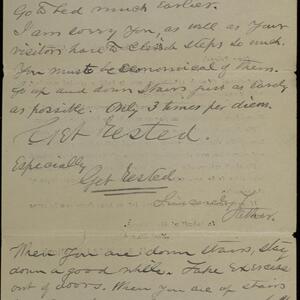 Go to bed much earlier.
I am sorry you, as well as your
visitors have to climb steps so much.
You must be economical of them.
Go up and down stairs just as rarely
as possible. Only 3 times per diem.
Get Rested.
Especially
Get Rested.
Sincerely
Father.
When you are down stairs, stay
down a good while. Take Exercise
out of doors. When you are up stairs